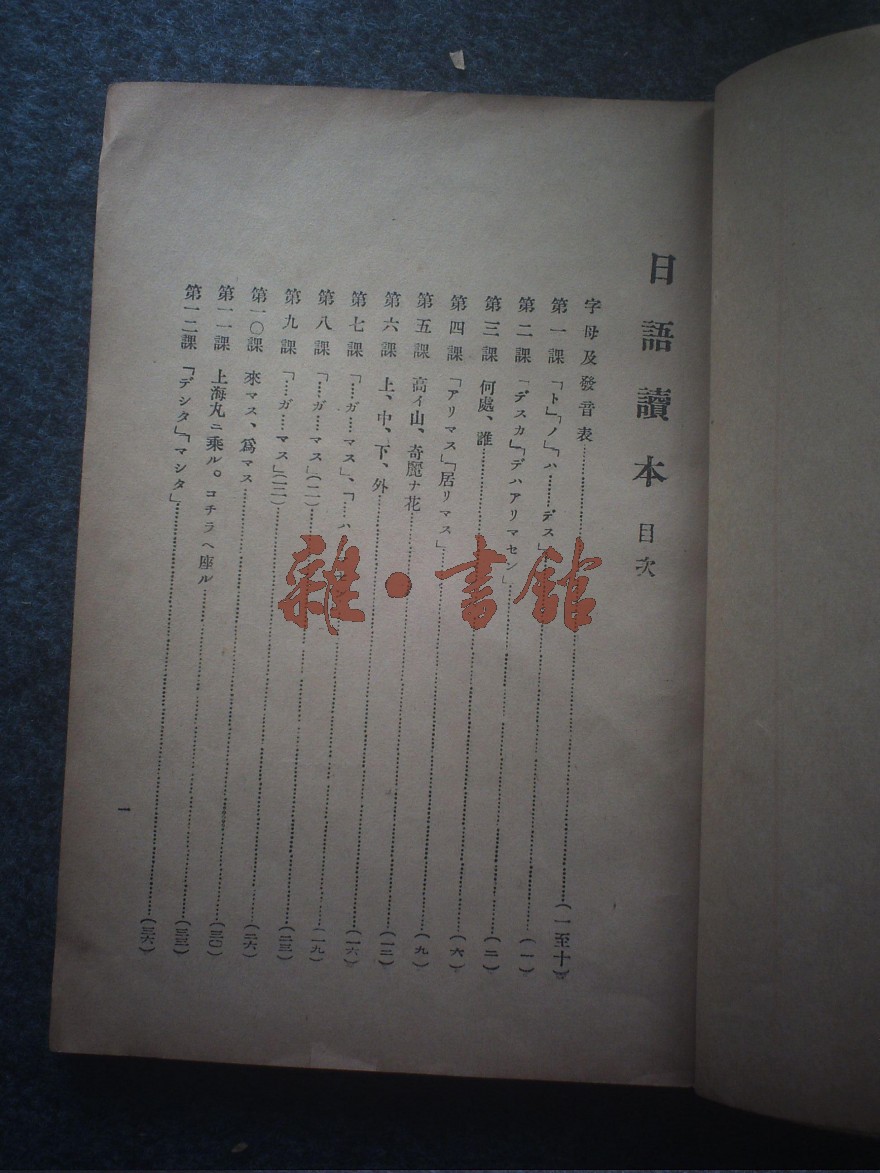 日語讀本 目次
字母及發音表……(一至十)
第一課 「ト」「ノ」「ハ……デス」……(一)
第二課 「デスカ」「デハアリマセン」……(二)
第三課 何處、誰……(六)
第四課 「アリマス」「居リマス」……(九)
第五課 高イ山、奇麗ナ花……(一三)
第六課 上、中、下、外……(一六)
第七課 「……ガ……マス」、「……ハ
第八課 「……ガ……マス」(二)……(二三)
第九課 「……ガ……マス」(三)……(二六)
第一〇課 來マス、爲マス……(三〇)
第一一課 上海丸ニ乘ル。コチラヘ座ル……(三三)
第一二課 「デシタ」「マシタ」……(三六)
一
雜·書館